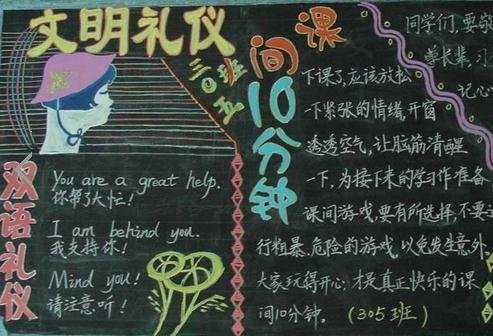 文明礼仪
三〇五班
双语礼仪
You are a great help.
你帮了大忙!
I am behind you.
我支持你!
Mind you!
请注意听!
课间10分钟
下课了,应该放松
一下紧张的情绪,开窗
透透空气,让脑筋清醒
一下,为接下来的学习作准备.
课间游戏,要有所选择,不要
行粗暴、危险的游戏,以免发生意外.
大家玩得开心,才是真正快乐的课
间10分钟。(305班)
同学们,要
学长辈,
记心